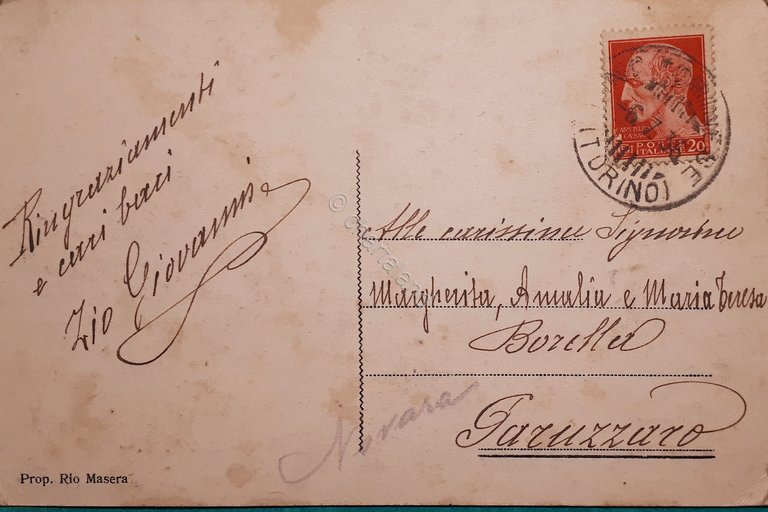 Ringraziamenti
e cari baci
Zio Giovanni
(TORINO)
POSTE
ITALIANE
20
Alle carissime Signorine
Margherita, Amalia e Maria Teresa
Borella
Paruzzaro
Novara
Prop. Rio Masera